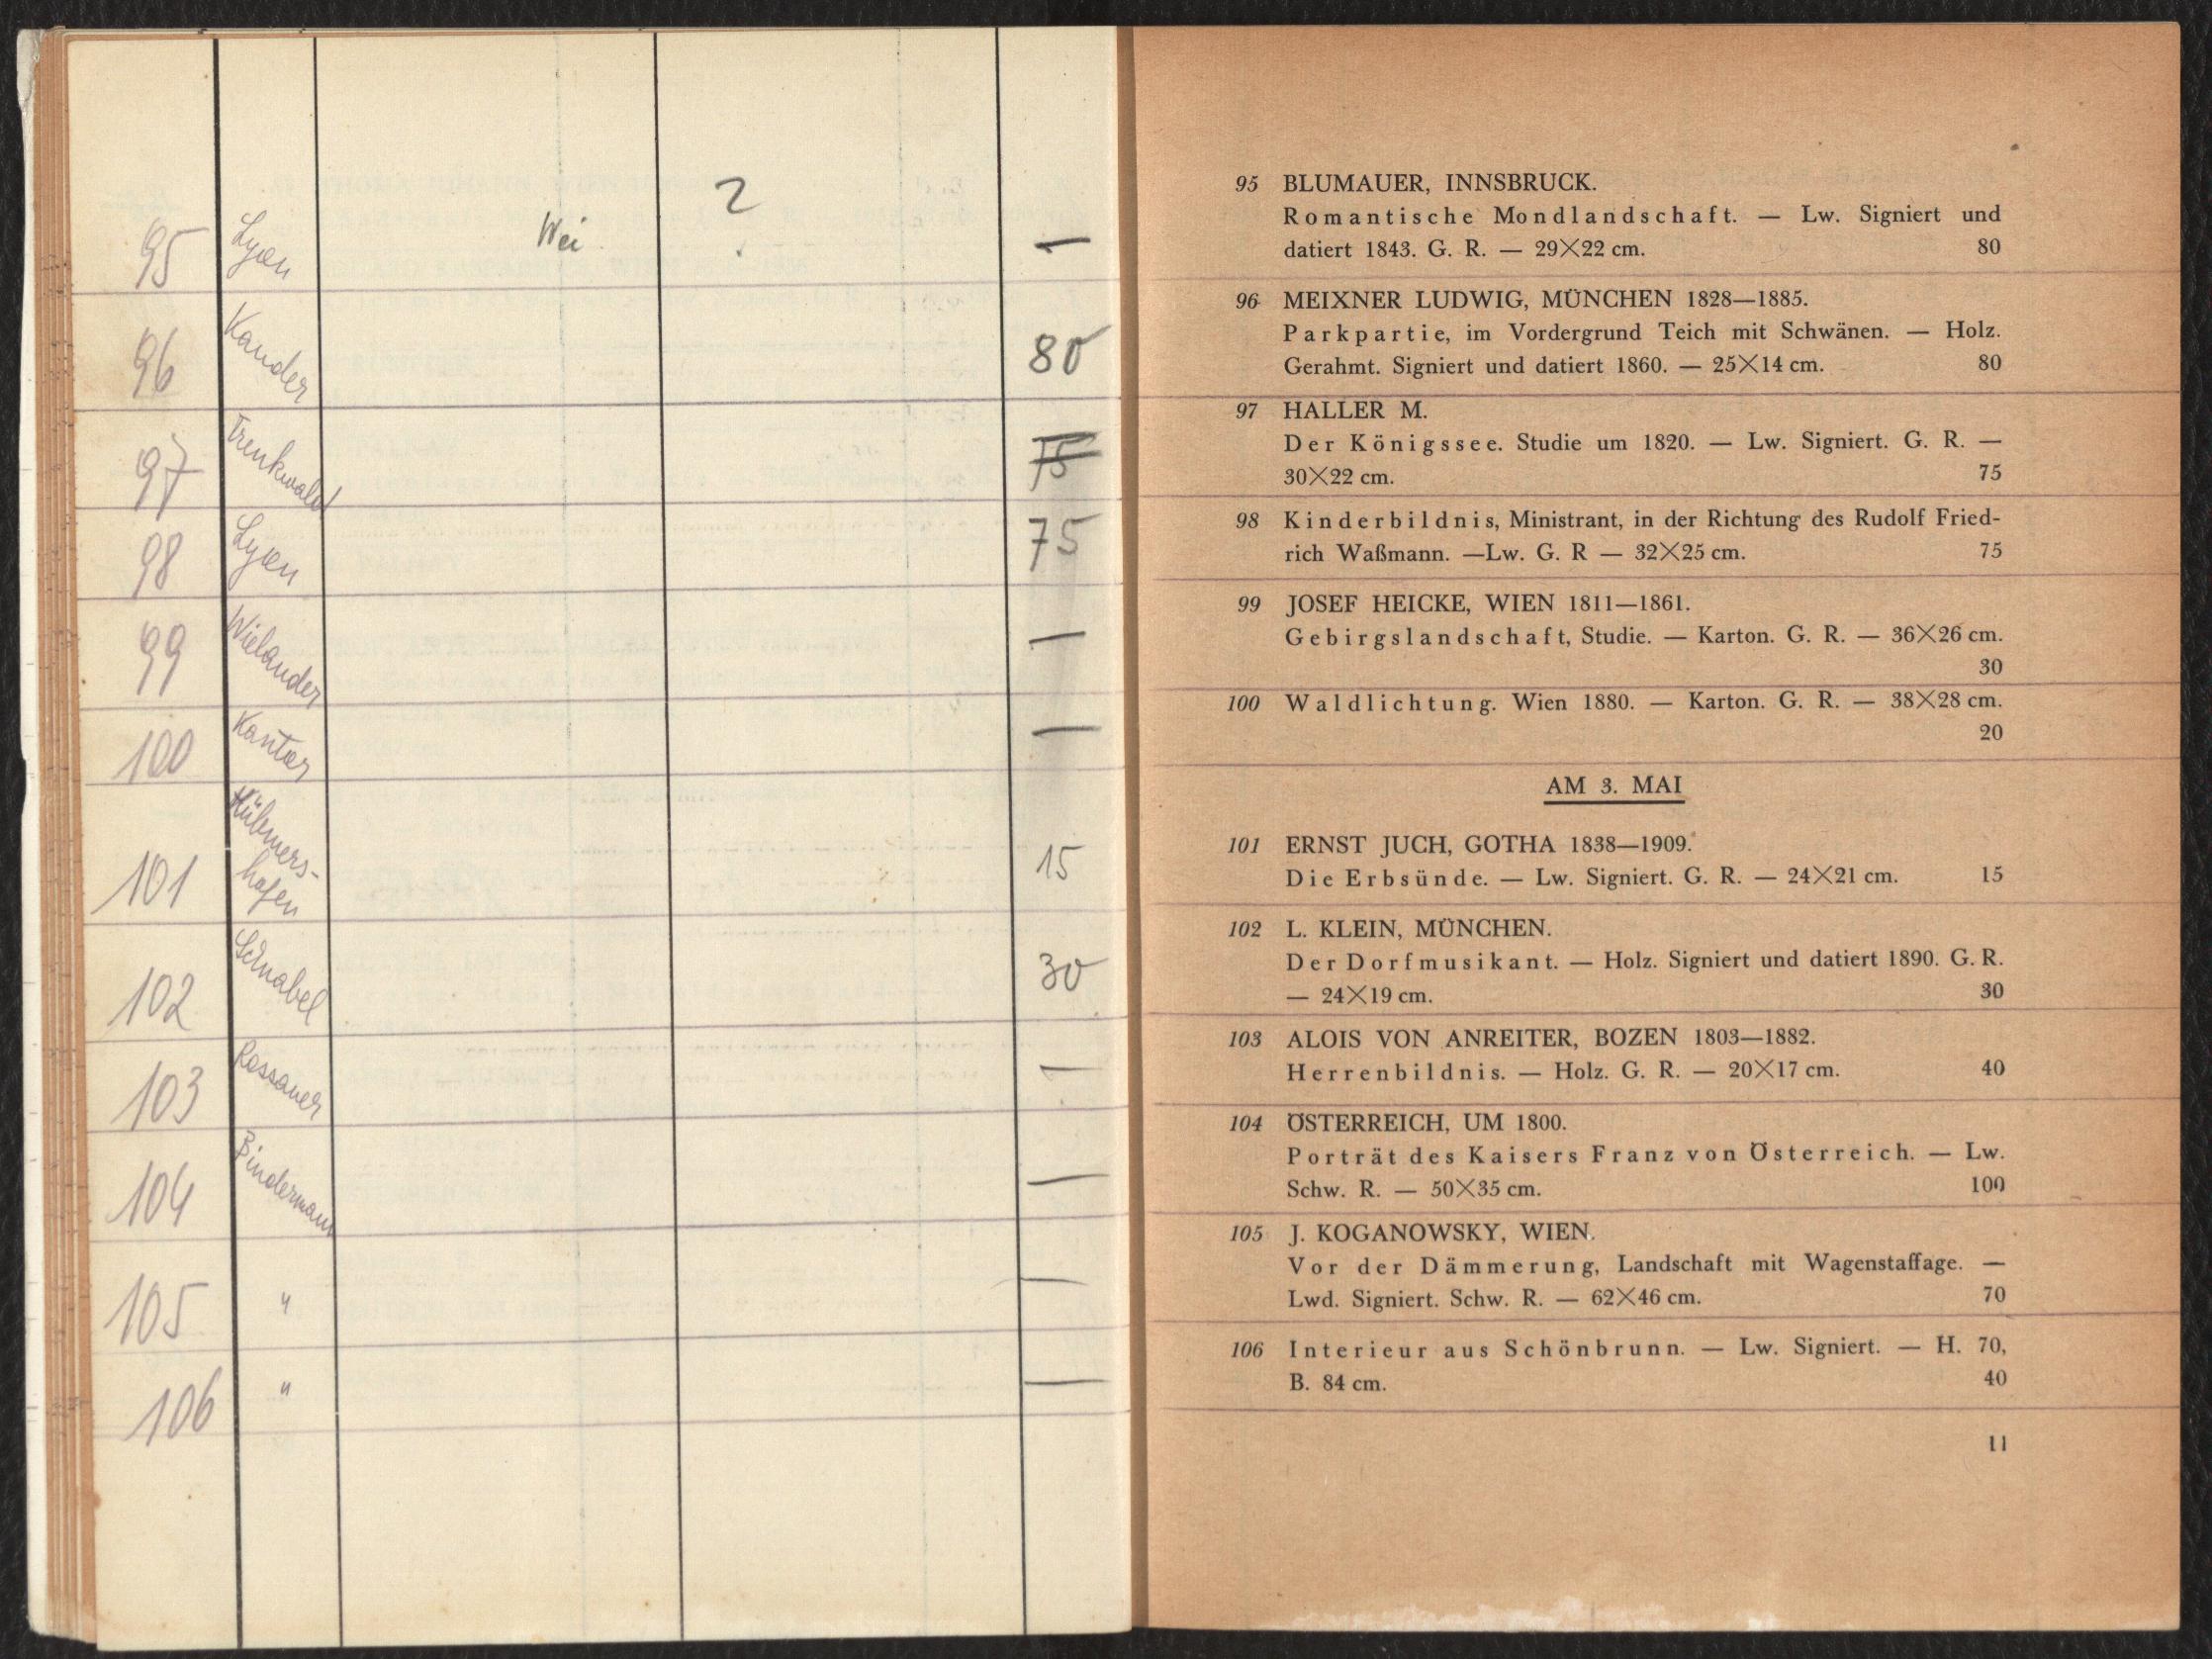 95 Lyon Wei 2 —
96 Kander 80
97 Trenkwald 75
98 Lyon 75
99 Wielander —
100 Kantor —
101 Hübmers-
hofen 15
102 Schnabel 30
103 Rossauer —
104 Bindermann —
105 " —
106 " —
95 BLUMAUER, INNSBRUCK.
Romantische Mondlandschaft. — Lw. Signiert und
datiert 1843. G. R. — 29×22 cm. 80
96 MEIXNER LUDWIG, MÜNCHEN 1828—1885.
Parkpartie, im Vordergrund Teich mit Schwänen. — Holz.
Gerahmt. Signiert und datiert 1860. — 25×14 cm. 80
97 HALLER M.
Der Königssee. Studie um 1820. — Lw. Signiert. G. R. —
30×22 cm. 75
98 Kinderbildnis, Ministrant, in der Richtung des Rudolf Fried-
rich Waßmann. —Lw. G. R — 32×25 cm. 75
99 JOSEF HEICKE, WIEN 1811—1861.
Gebirgslandschaft, Studie. — Karton. G. R. — 36×26 cm.
30
100 Waldlichtung. Wien 1880. — Karton. G. R. — 38×28 cm.
20
AM 3. MAI
101 ERNST JUCH, GOTHA 1838—1909.
Die Erbsünde. — Lw. Signiert. G. R. — 24×21 cm. 15
102 L. KLEIN, MÜNCHEN.
Der Dorfmusikant. — Holz. Signiert und datiert 1890. G. R.
— 24×19 cm. 30
103 ALOIS VON ANREITER, BOZEN 1803—1882.
Herrenbildnis. — Holz. G. R. — 20×17 cm. 40
104 ÖSTERREICH, UM 1800.
Porträt des Kaisers Franz von Österreich. — Lw.
Schw. R. — 50×35 cm. 100
105 J. KOGANOWSKY, WIEN.
Vor der Dämmerung, Landschaft mit Wagenstaffage. —
Lwd. Signiert. Schw. R. — 62×46 cm. 70
106 Interieur aus Schönbrunn. — Lw. Signiert. — H. 70,
B. 84 cm. 40
11